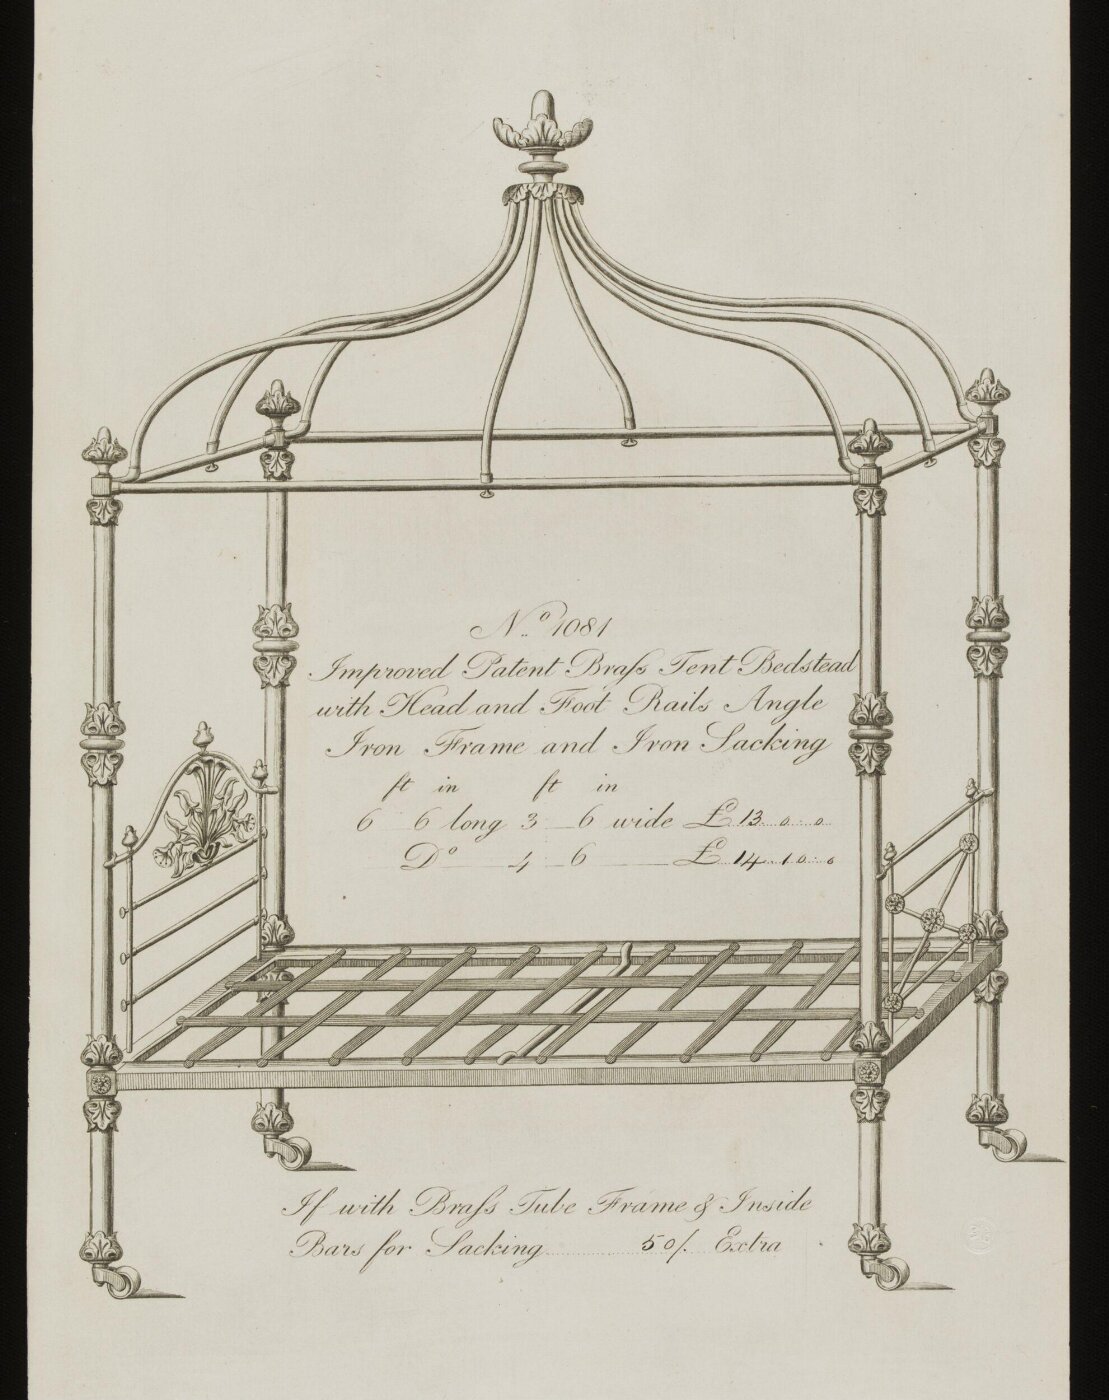 N.º 1081
Improved Patent Braſs Tent Bedstead
with Head and Foot Rails Angle
Iron Frame and Iron Sacking
ft in ft in
6 6 long 3 6 wide £13..0..0
Dº 4 6 £14..10..0
If with Braſs Tube Frame & Inside
Bars for Sacking 50/. Extra